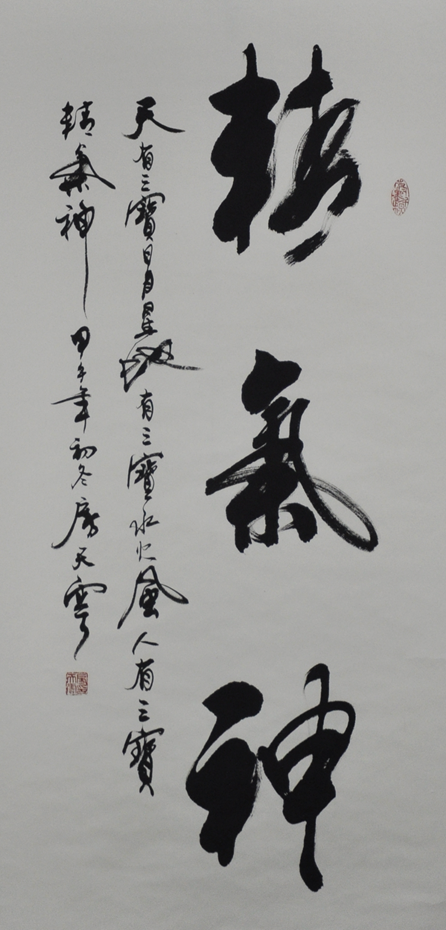 精氣神
天有三寶日月星地有三寶水火風人有三寶
精氣神甲午年初冬房天雩